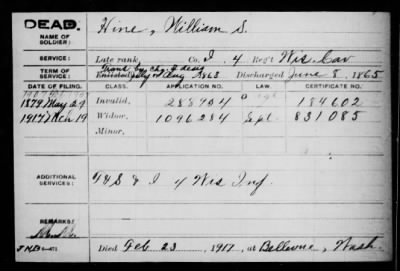 DEAD.
NAME OF SOLDIER: Hine, William S.
SERVICE: Late rank, Co. I, 4 Reg't Wis. Cav
TERM OF SERVICE: Enlisted Aug 1863 Discharged June 8, 1865
DATE OF FILING. CLASS. APPLICATION NO. LAW. CERTIFICATE NO.
1879 May 29 Invalid, 288904 184602
1917 Mch 19 Widow, 1096284 831085
Minor,
ADDITIONAL SERVICES: F&S & I 4 Wis Inf
REMARKS:
Died Feb 23, 1917, at Bellevue, Wash.